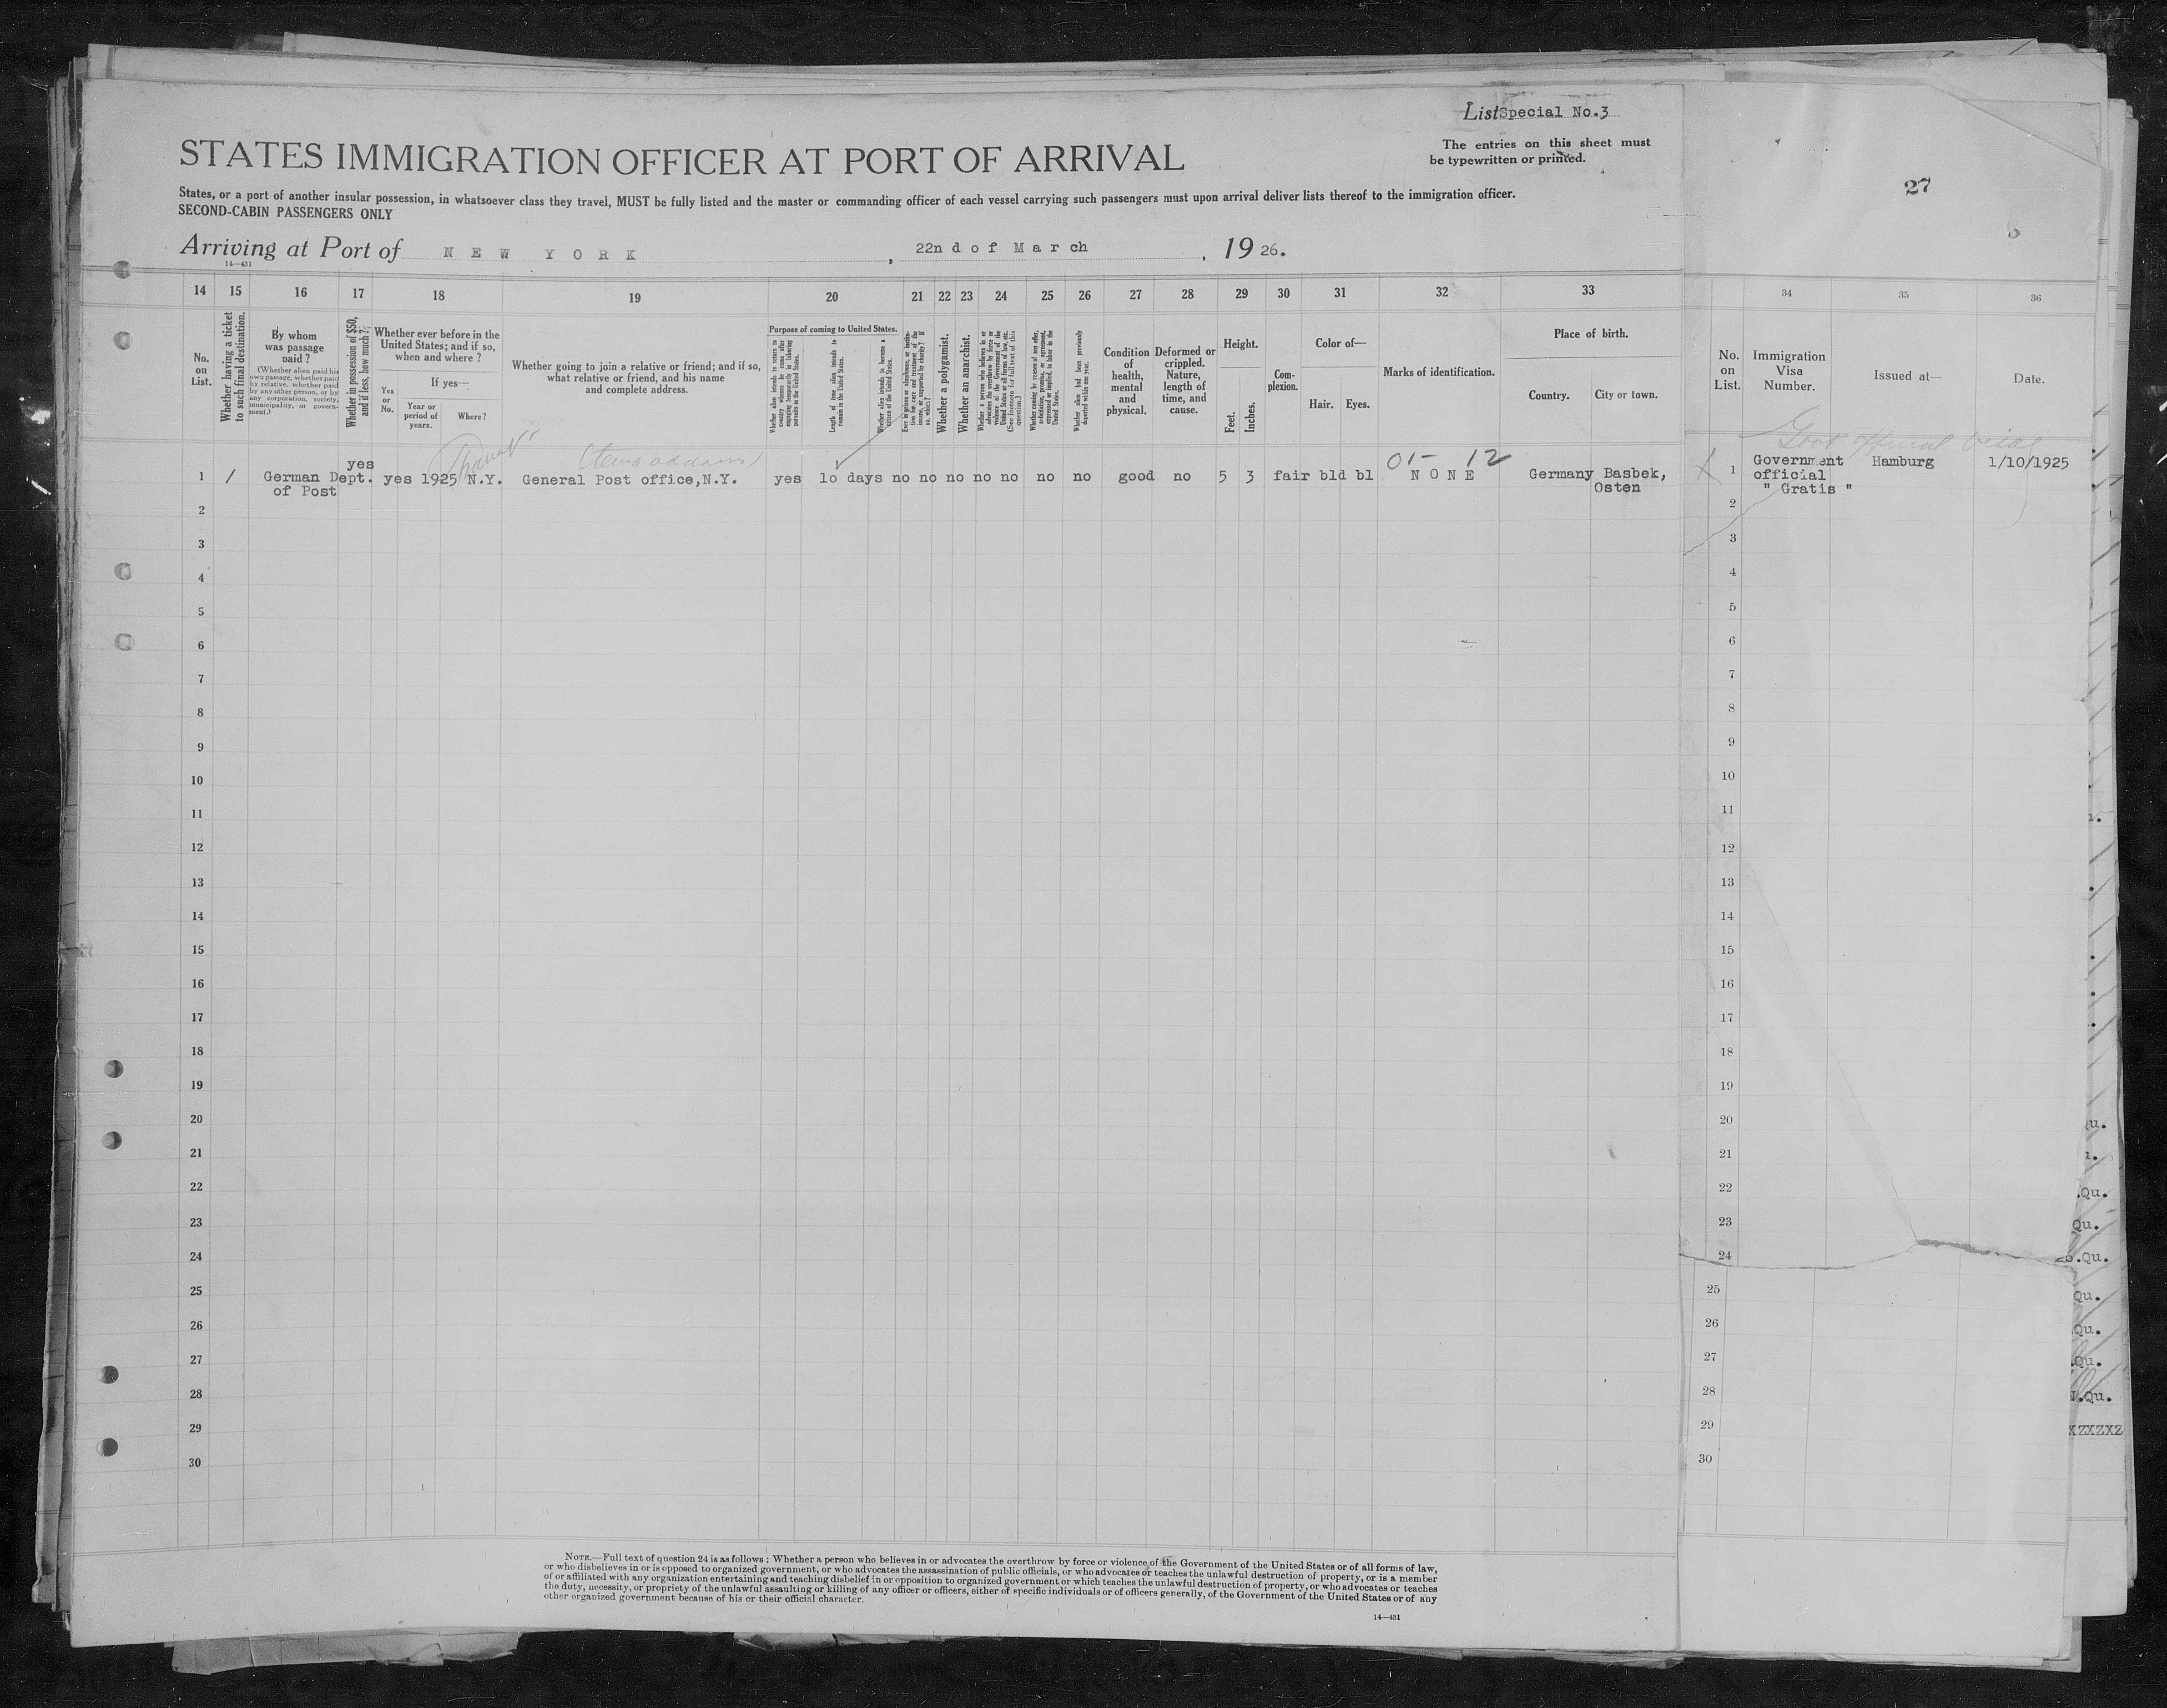 List Special No.3
STATES IMMIGRATION OFFICER AT PORT OF ARRIVAL
The entries on this sheet must
be typewritten or printed.
27
States, or a port of another insular possession, in whatsoever class they travel, MUST be fully listed and the master or commanding officer of each vessel carrying such passengers must upon arrival deliver lists thereof to the immigration officer.
SECOND-CABIN PASSENGERS ONLY
Arriving at Port of N E W Y O R K , 22n d o f M a r ch , 19 26.
14—431
14 15 16 17 18 19 20 21 22 23 24 25 26 27 28 29 30 31 32 33 34 35 36
No. on List.
Whether having a ticket to such final destination.
By whom was passage paid?
(Whether alien paid his own passage, whether paid by relative, whether paid by any other person, or by any corporation, society, municipality, or government.)
Whether in possession of $50, and if less, how much?
Whether ever before in the United States; and if so, when and where?
If yes—
Yes or No.
Year or period of years.
Where?
Whether going to join a relative or friend; and if so, what relative or friend, and his name and complete address.
Purpose of coming to United States.
Whether alien intends to return to country whence he came after engaging temporarily in laboring pursuits in the United States.
Length of time alien intends to remain in the United States.
Whether alien intends to become a citizen of the United States.
Ever in prison or almshouse, or institution for care and treatment of the insane, or supported by charity? If so, which?
Whether a polygamist.
Whether an anarchist.
Whether a person who believes in or advocates the overthrow by force or violence of the Government of the United States or all forms of law, etc. (See footnote for full text of this question.)
Whether coming by reason of any offer, solicitation, promise, or agreement, expressed or implied, to labor in the United States.
Whether alien had been previously deported within one year.
Condition of health, mental and physical.
Deformed or crippled. Nature, length of time, and cause.
Height.
Feet.
Inches.
Complexion.
Color of—
Hair. Eyes.
Marks of identification.
Place of birth.
Country. City or town.
No. on List.
Immigration Visa Number.
Issued at—
Date.
(temp address)
Govt official visa
01- 12
1 / German Dept. of Post yes yes 1925 N.Y. General Post office,N.Y. yes 1o days no no no no no no no good no 5 3 fair bld bl N O N E Germany Basbek, Osten
1 Government official " Gratis " Hamburg 1/10/1925
2 2
3 3
4 4
5 5
6 6
7 7
8 8
9 9
10 10
11 11
12 12
13 13
14 14
15 15
16 16
17 17
18 18
19 19
20 20
21 21
22 22
.Qu.
23 23
Qu.
24 24
.Qu.
25 25
Qu.
26 26
.Qu.
27 27
.Qu.
28 28
.Qu.
29 29
XZXZXZ
30 30
NOTE.—Full text of question 24 is as follows: Whether a person who believes in or advocates the overthrow by force or violence of the Government of the United States or of all forms of law,
or who disbelieves in or is opposed to organized government, or who advocates the assassination of public officials, or who advocates or teaches the unlawful destruction of property, or is a member
of or affiliated with any organization entertaining and teaching disbelief in or opposition to organized government or which teaches the unlawful destruction of property, or who advocates or teaches
the duty, necessity, or propriety of the unlawful assaulting or killing of any officer or officers, either of specific individuals or of officers generally, of the Government of the United States or of any
other organized government because of his or their official character.
14—431